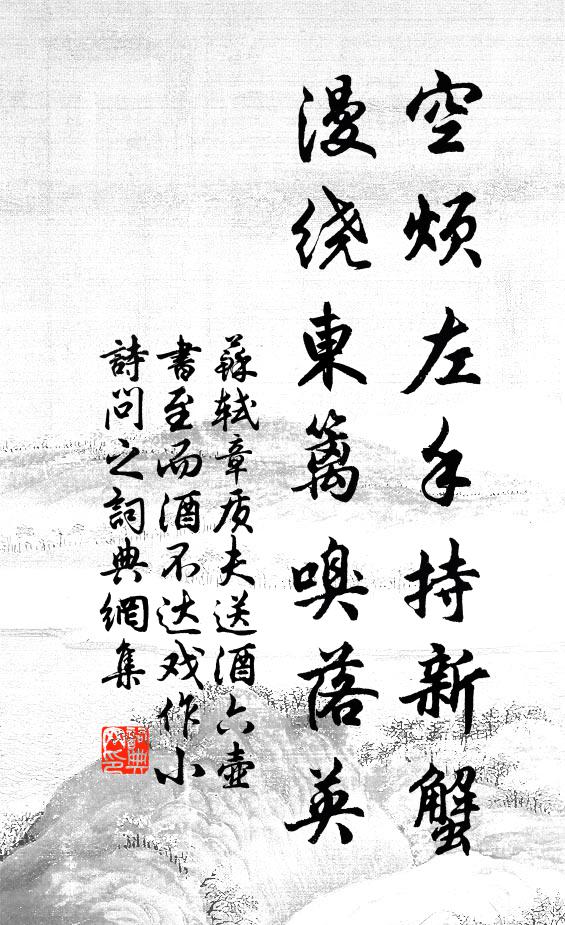 空烦左手持新蟹
漫绕東篱嗅落英
蘇轼章质夫送酒六壶
書至而酒不达戏作小
詩问之詞典網集